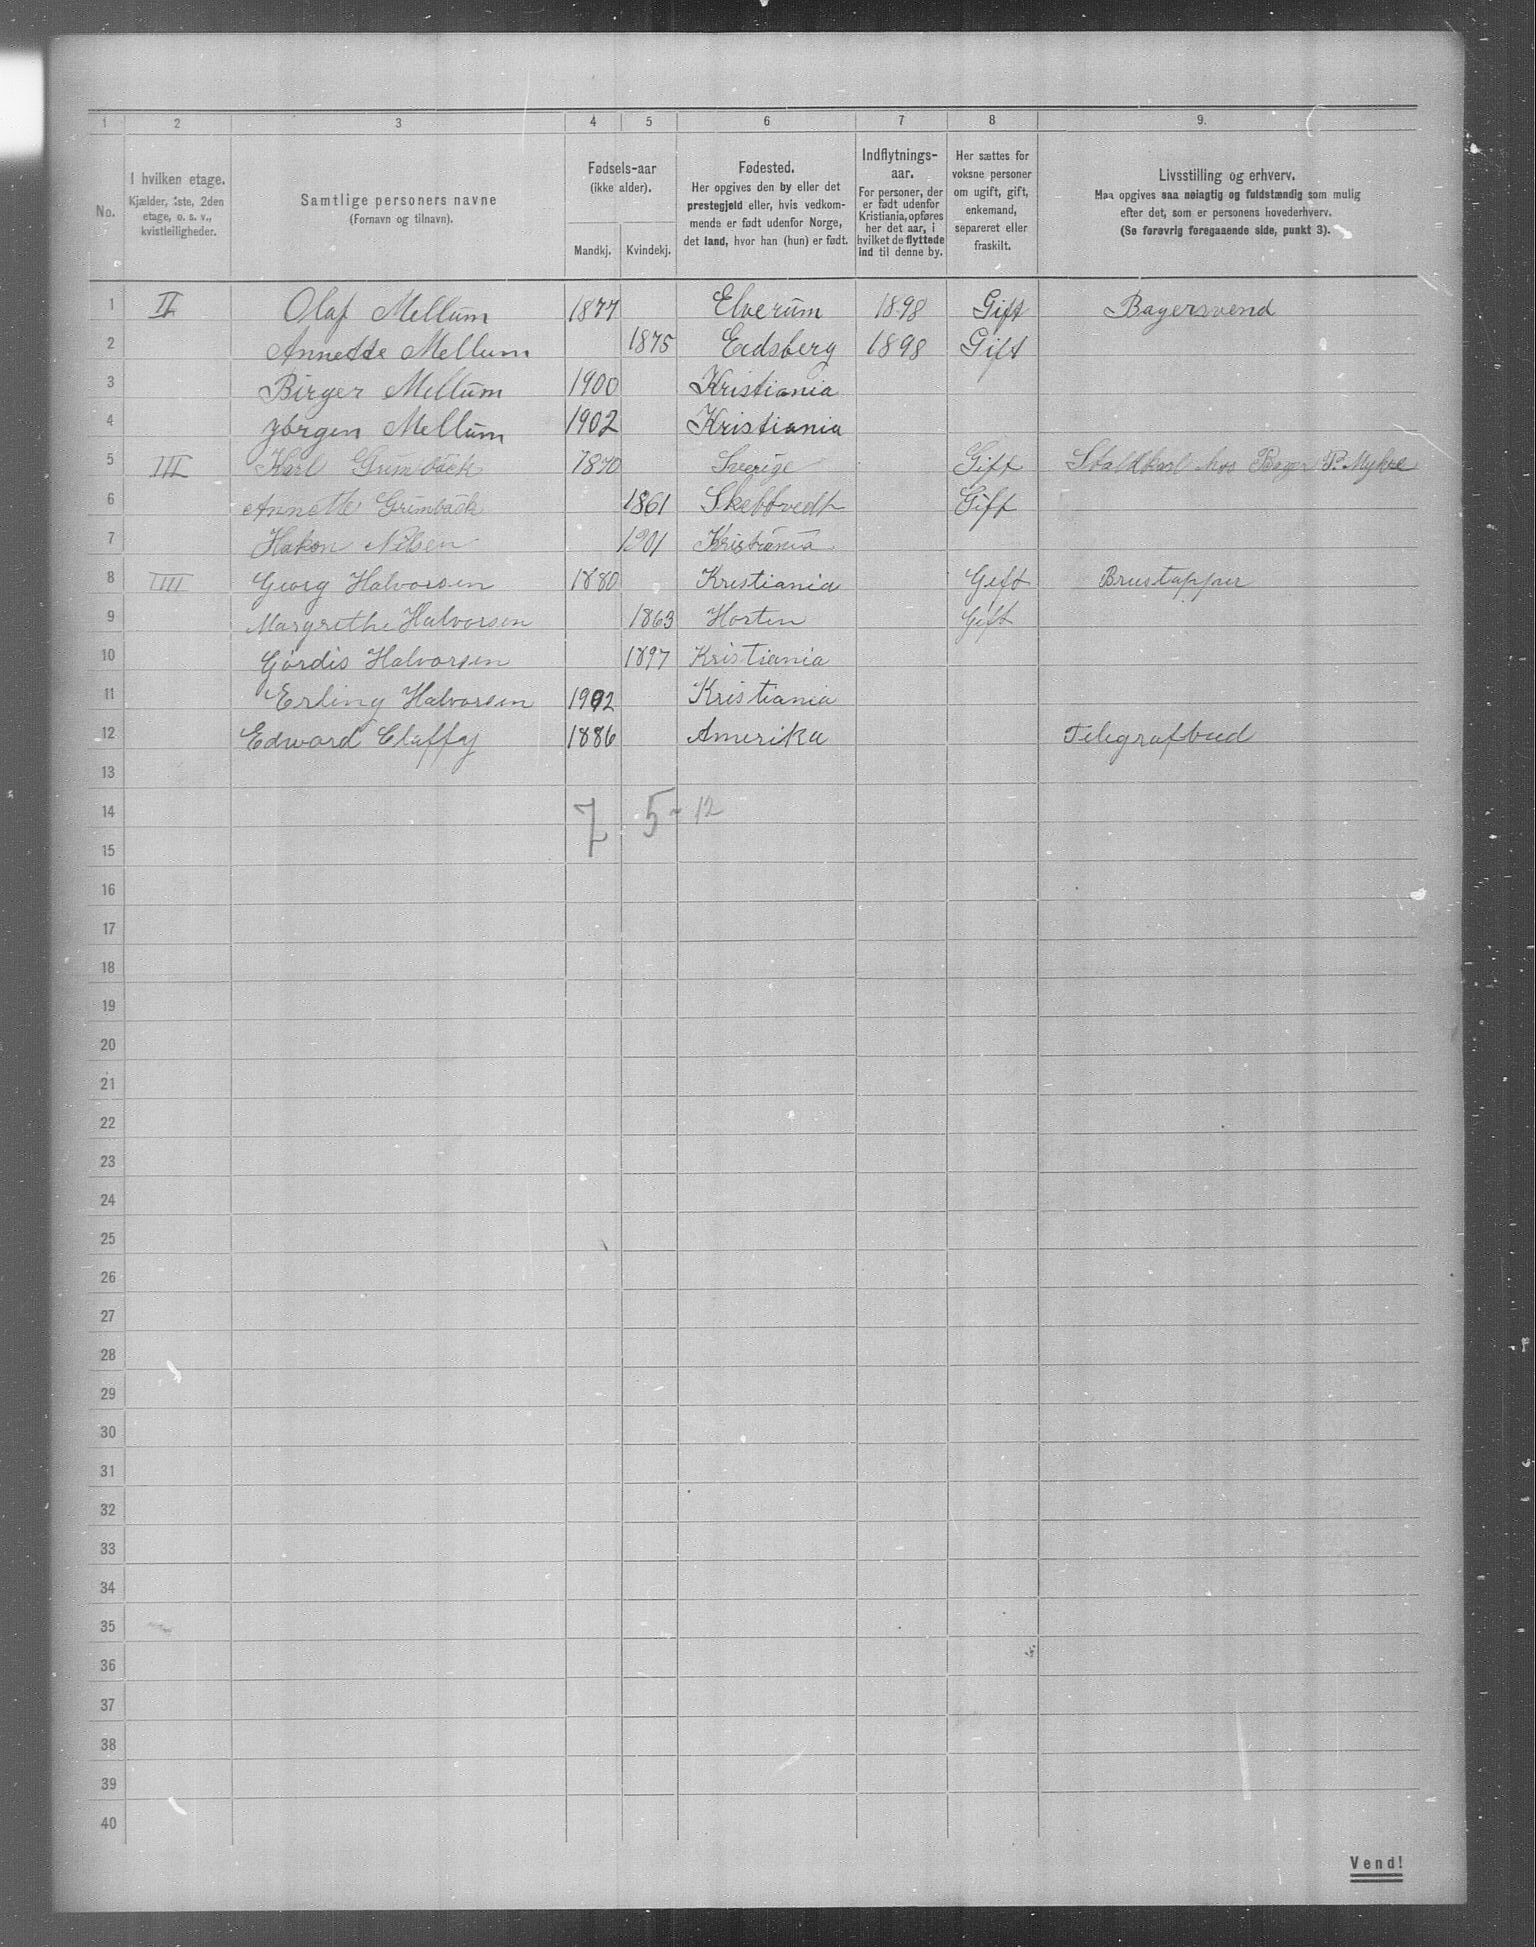 1 2 3 4 5 6 7 8 9.
No. I hvilken etage. Kjælder, 1ste, 2den etage, o. s. v., kvistleiligheder.
Samtlige personers navne (Fornavn og tilnavn).
Fødsels-aar (ikke alder). Mandkj. Kvindekj.
Fødested. Her opgives den by eller det prestegjeld eller, hvis vedkommende er født udenfor Norge, det land, hvor han (hun) er født.
Indflytnings-aar. For personer, der er født udenfor Kristiania, opføres her det aar, i hvilket de flyttede ind til denne by.
Her sættes for voksne personer om ugift, gift, enkemand, separeret eller fraskilt.
Livsstilling og erhverv. Maa opgives saa nøiagtig og fuldstændig som mulig efter det, som er personens hovederhverv. (Se forøvrig foregaaende side, punkt 3).
1 II Olaf Mellum 1877 Elverum 1898 Gift Bagersvend
2 Annette Mellum 1875 Eidsberg 1898 Gift
3 Birger Mellum 1900 Kristiania
4 Jørgen Mellum 1902 Kristiania
5 III Karl Grumbäck 1870 Sverige Gift Staldkarl hos Bager P. Myhre
6 Annette Grumbäck 1861 Skebtvedt Gift
7 Hakon Nilsen 1901 Kristiania
8 IIII Georg Halvorsen 1880 Kristiania Gift Brustapper
9 Margrethe Halvorsen 1863 Horten Gift
10 Gjördis Halvorsen 1897 Kristiania
11 Erling Halvorsen 1902 Kristiania
12 Edward Claffy 1886 Amerika Telegrafbud
13
14 7 5 - 12
15
16
17
18
19
20
21
22
23
24
25
26
27
28
29
30
31
32
33
34
35
36
37
38
39
40
Vend!